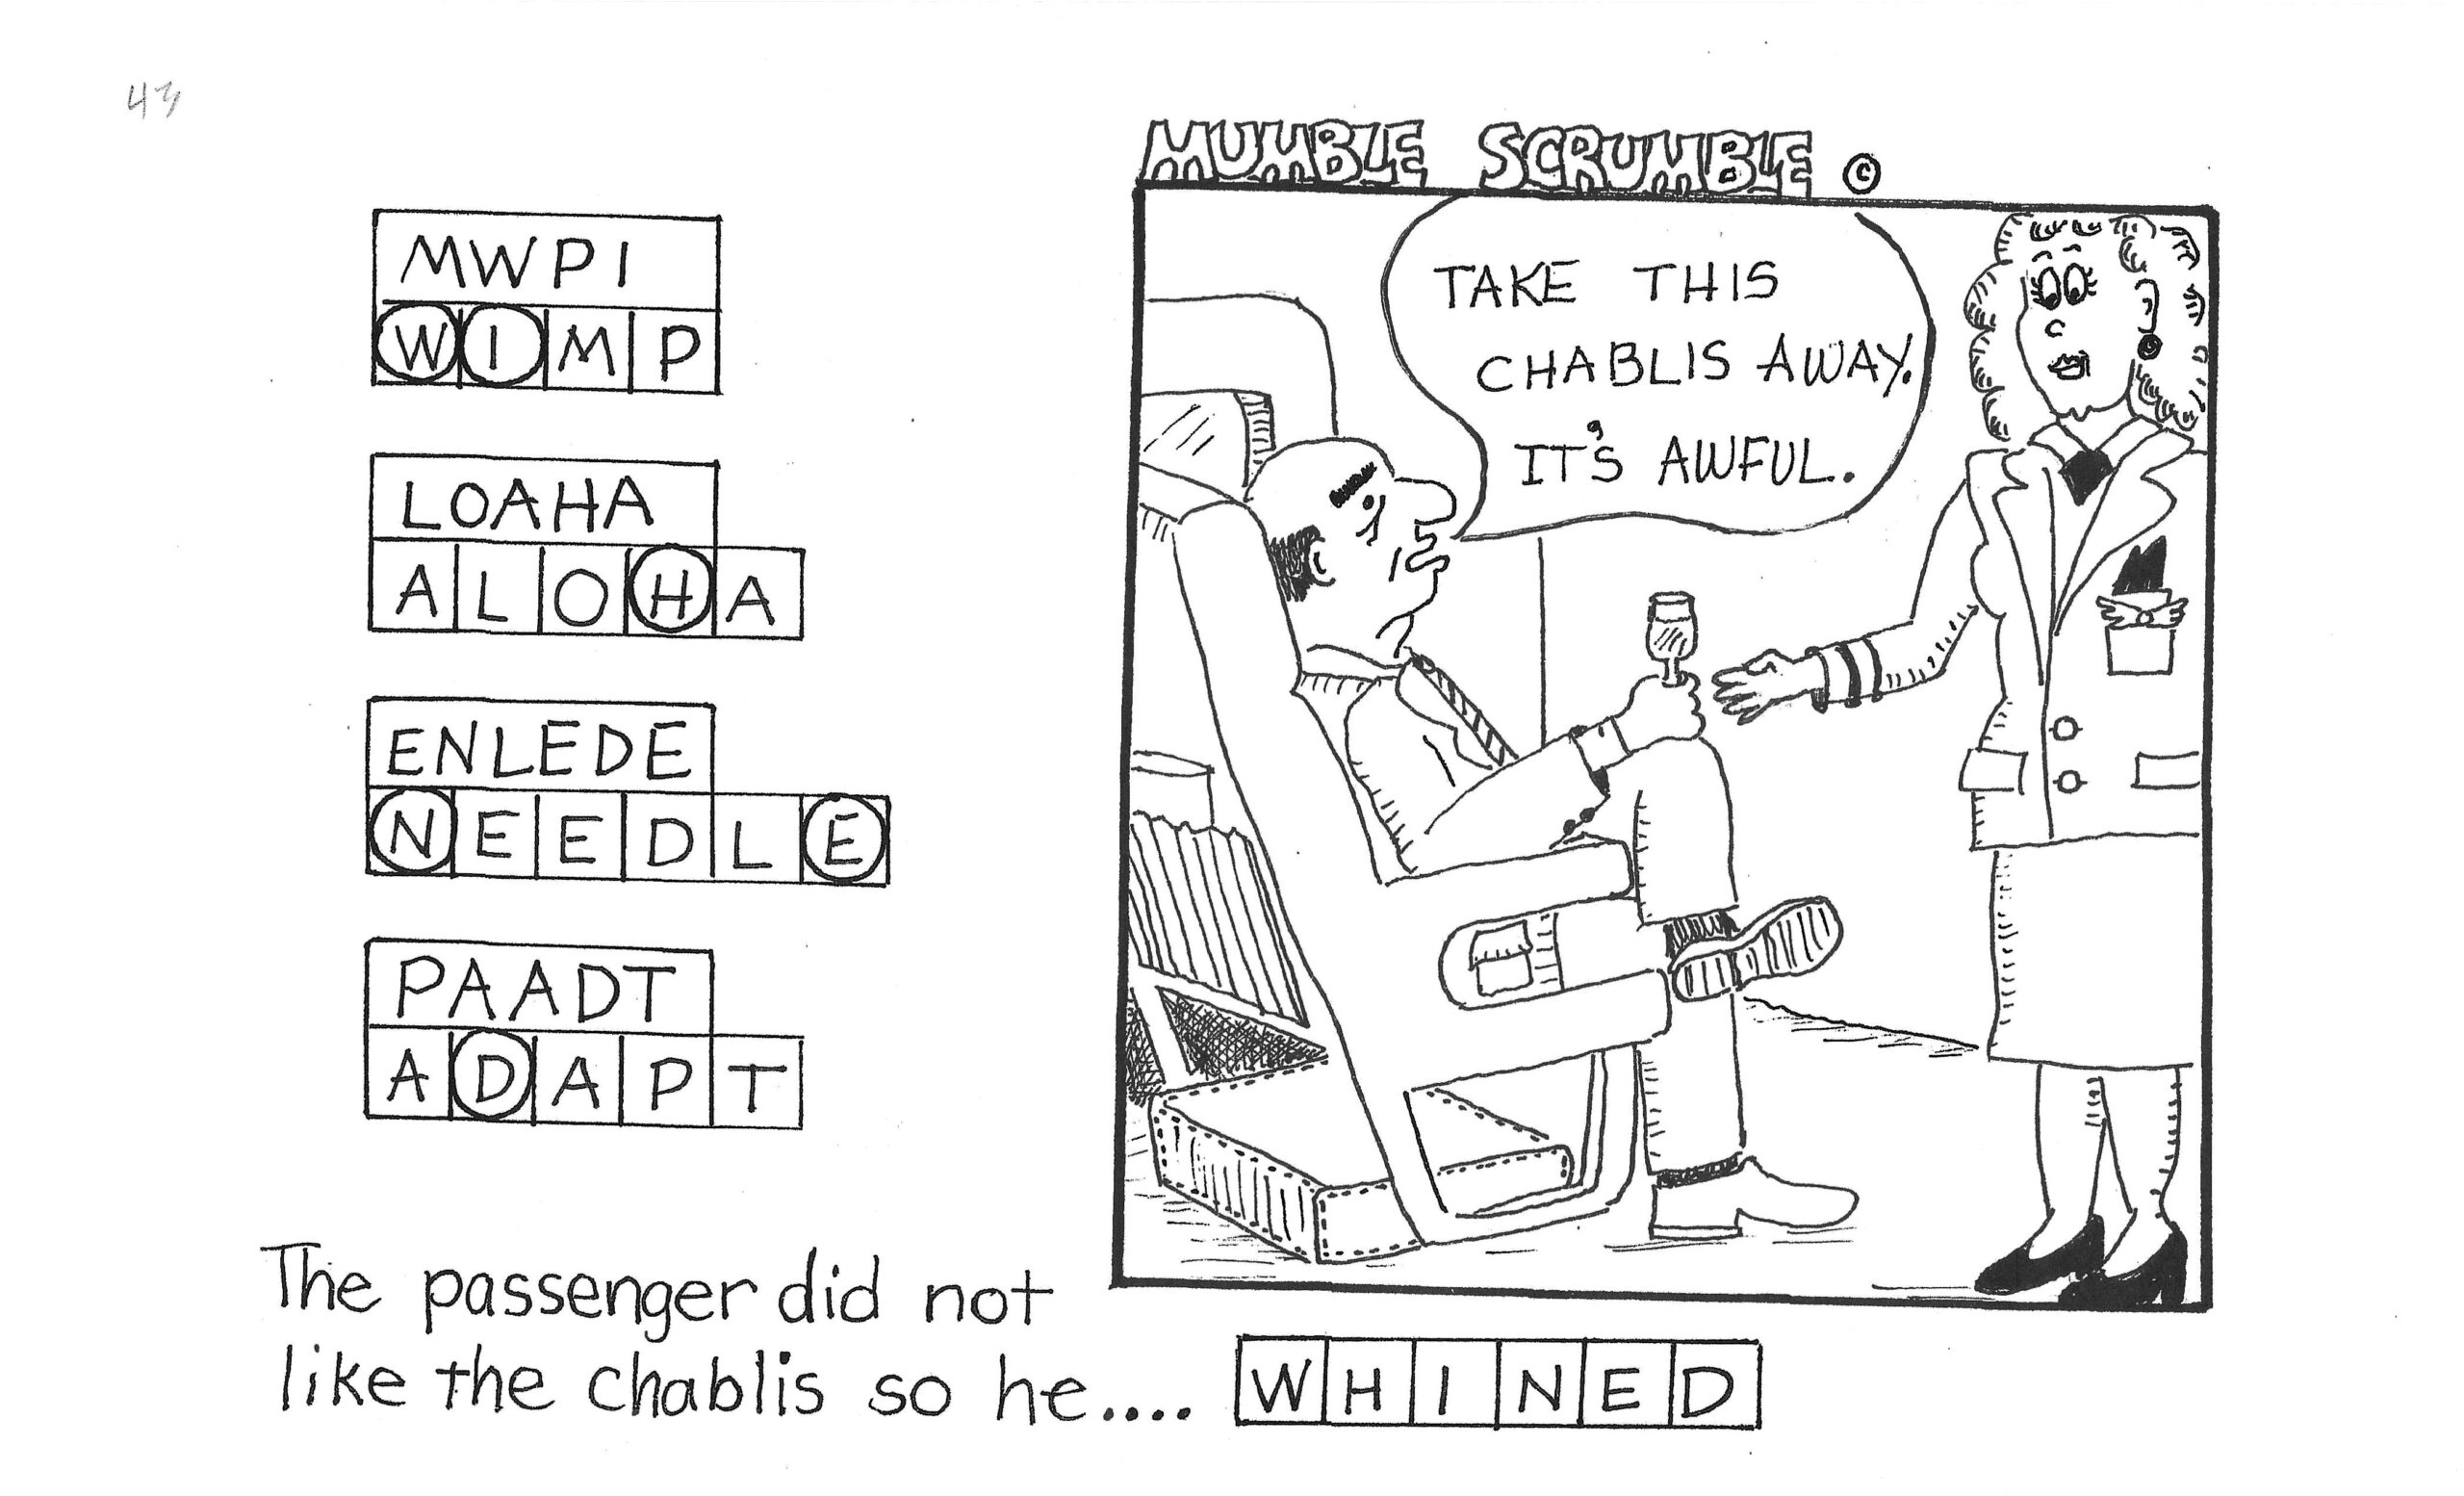 43
MUMBLE SCRUMBLE ©
MWPI
WIMP
LOAHA
ALOHA
ENLEDE
NEEDLE
PAADT
ADAPT
TAKE THIS
CHABLIS AWAY.
IT'S AWFUL.
The passenger did not
like the chablis so he.... WHINED